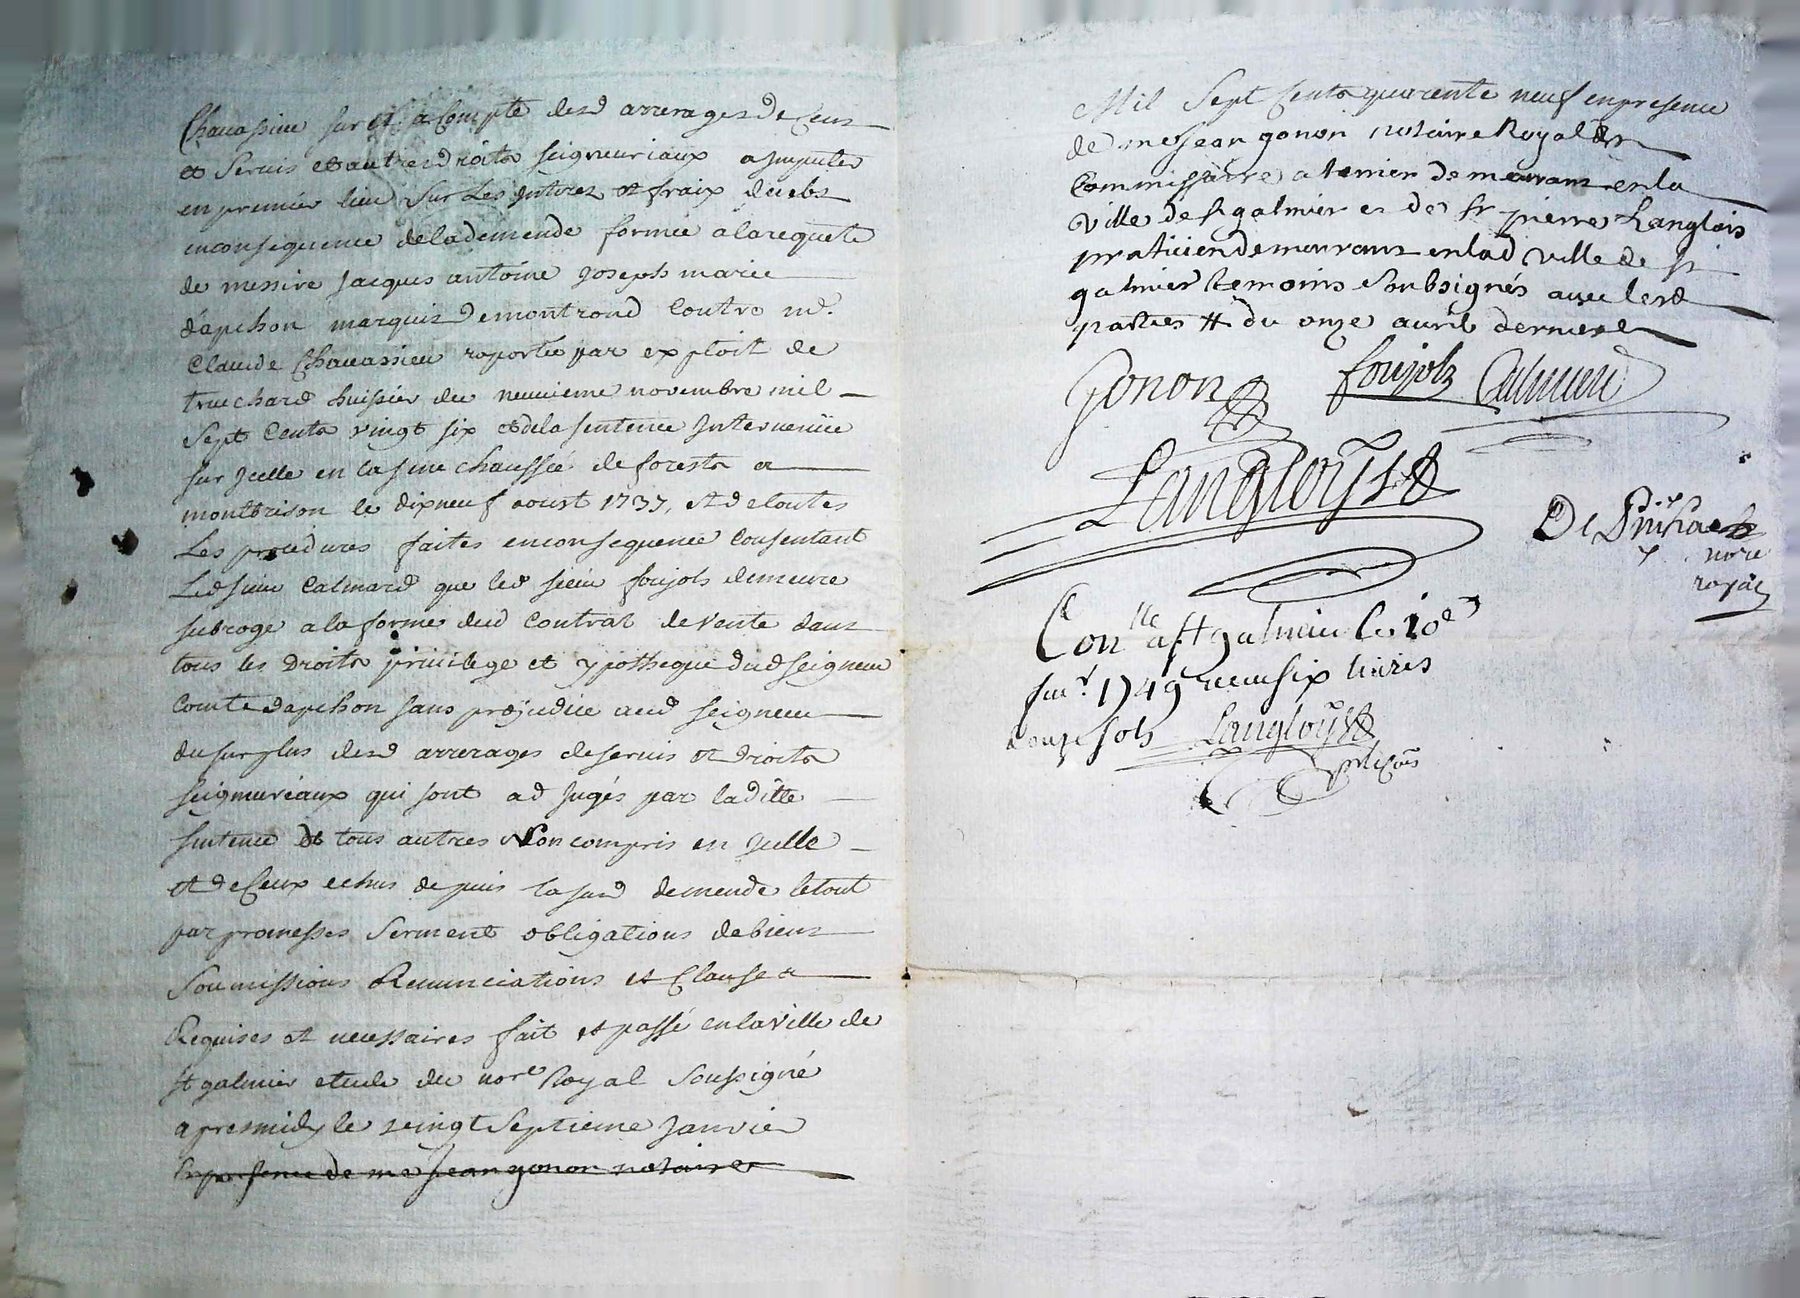 Chavassieu sur et a Compte desd arrerages de Cens
et Servis et autres droits seigneuriaux a Imputer
en premier lieu Sur Les Interez et fraix deubs
en consequence de la demende formée a la requete
de messire Jacques antoine Joseph marie
d'apchon marquis de montrond Contre md.
Claude Chavassieu raportée par exploit de
truchard huissier du neuvieme novembre mil
Sept Cents vingt six et de la sentence Intervenüe
sur Icelle en la senechaussée de forests a
montbrison le dix neuf aoust 1737, et de toutes
Les procedures faites en consequence Consentant
Led sieur Calmard que led sieur foujols demeure
subrogé a la forme dud Contrat de Vente dans
tous les droits privilege et ypotheque dud seigneur
Comte dapchon sans prejudice aud seigneur
du surplus desd arrerages de servis et droits
seigneuriaux qui sont adjugés par la ditte
sentence et tous autres Non compris en Icelle
et de Ceux echus depuis la sud demende le tout
par promesses Serment obligations de biens
Soumissions Renunciations et Clauses
Requises et necessaires fait et passé en la ville de
st galmier etude du nore Royal Soussigné
apres midy le vingt Septieme Janvier
En presence de me Jean gonon notaire
Mil Sept Cents quarente neuf en presence
de me Jean gonon notaire Royal et
Commissaire a terrier demeurant en la
ville de st galmier et de sr pierre Langlois
praticien demeurant en lad ville de st
galmier temoins Soubsignés avec lesd
parties # du onze avril dernier
Gonon foujols Calmard
Langloys
De
nore
royal
Conlle a st galmier le 10e
fer 1749 recu six livres
douze sols Langloys